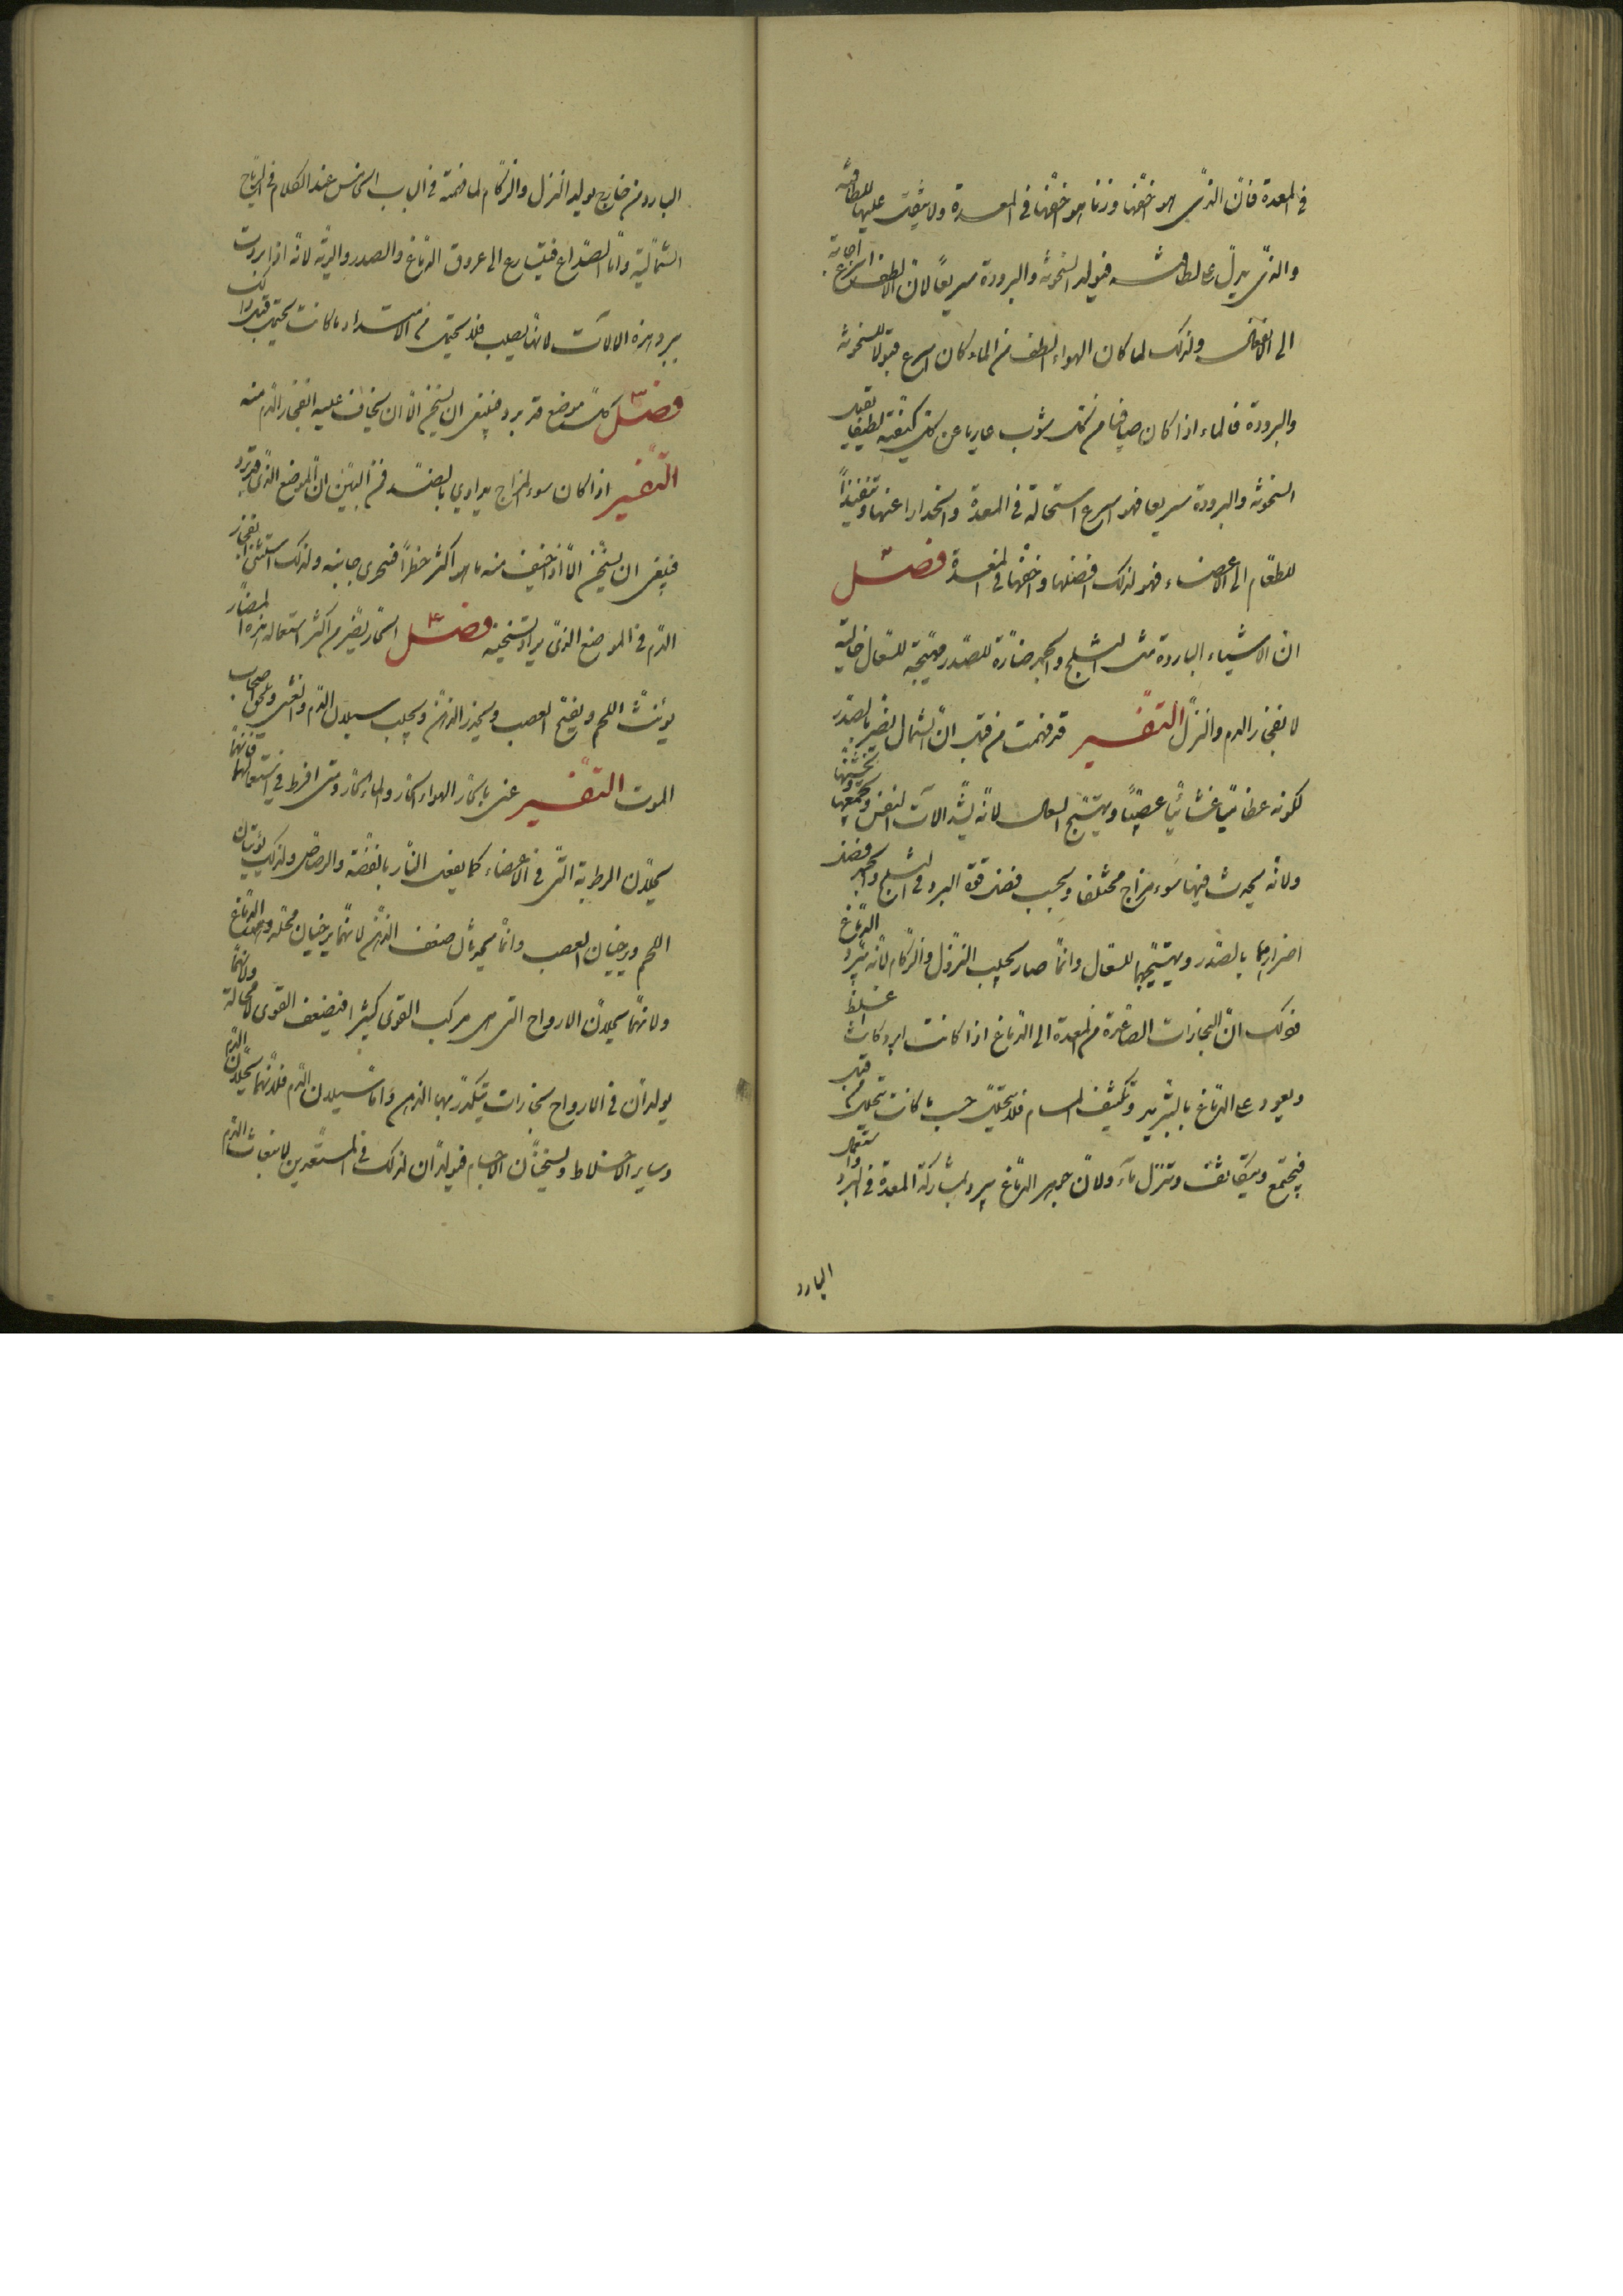 في المعدة فان الذي هو اخفها وزنا هو اخفها في المعدة ولا يثقل عليها للطافته
والذي يدل على لطافته فيولد السخونة والبرودة سريعا لان الالطف اسرع اجابة
الى الانفعال ولذلك لما كان الهواء الطف من الماء كان اسرع قبولا للسخونة
والبرودة فالماء اذا كان صافيا من كل شوب عاريا عن كل كيفية لطيفا يقبل
السخونة والبرودة سريعا فهو اسرع استحالة في المعدة وانحدارا عنها وتنفيذا
للطعام الى الاعضاء فهو لذلك افضلها واخفها في المعدة فصل
ان الاشياء الباردة مثل الثلج والجمد ضارة للصدر مهيجة للسعال جالبة
لانفجار الدم والنزل التفسير قد فهمت من قبل ان الشمال يضر بالصدر
لكونه عظاميا غشائيا عصبيا ويهيج السعال لانه يشد الات النفس ويجمعها ويخشنها
ولانه يحدث فيها سوء مزاج مختلفا وبحسب فضل قوة البرد في الثلج والجمد فضل
اضرارهما بالصدر وتهييجهما للسعال وانما صار يجلب النزول والزكام لانه يبرد الدماغ
فذلك ان البخارات الصاعدة من المعدة الى الدماغ اذا كانت ابرد كانت اغلظ
ويعود على الدماغ بالتبريد وتكثيف المسام فلا يتحلل حسب ما كانت تتحلل من قبل
فيجتمع ويتكاثف وتنزل ماء ولان جوهر الدماغ يبرد لمشاركة المعدة في البرد واستعمال
البارد
البارد من خارج يولد النزل والزكام لما فهمته في الباب الخامس عند الكلام في الرياح
الشمالية واما الصداع فيتسارع الى عروق الدماغ والصدر والرية لانه اذا بردت
ببرد هذه الالات لانها تصلب فلا تحتمل من الامتداد ما كانت تحتمل قبل ذلك
فصل كل موضع قد برد فينبغي ان يسخن الا ان يخاف عليه انفجار الدم منه
التفسير اذا كان سوء المزاج يداوي بالضد فمن البين ان الموضع الذي قد برد
فينبغي ان يسخن الا اذا خيف منه ما هو اكثر خطرا فتحرى جانبه ولذلك استثنى انفجار
الدم في الموضع الذي يراد تسخينه فصل الحار يضر من اكثر استعماله هذه المضار
يؤنث اللحم ويفتح العصب ويخدر الذهن ويجلب سيلان الدم والغشي ويلحق اصحاب
الموت التفسير عنى بالحار الهواء الحار والماء الحار ومتى افرط في استعمالهما فانهما
يحللان الرطوبة التي في الاعضاء كما يفعل النار بالفضة والرصاص ولذلك يؤنثان
اللحم ويرخيان العصب وانما يحدثان ضعف الذهن لانهما يرخيان محله وهو الدماغ
ولانهما يحللان الارواح التي هي مركب القوى كثيرا فيضعف القوى لا محالة ولانهما
يولدان في الارواح بخارات يتكدر بها الذهن واما سيلان الدم فلانهما يحللان الدم
وساير الاخلاط ويسخنان الاجسام فيولدان لذلك في المستعدين لانبعاث الدم